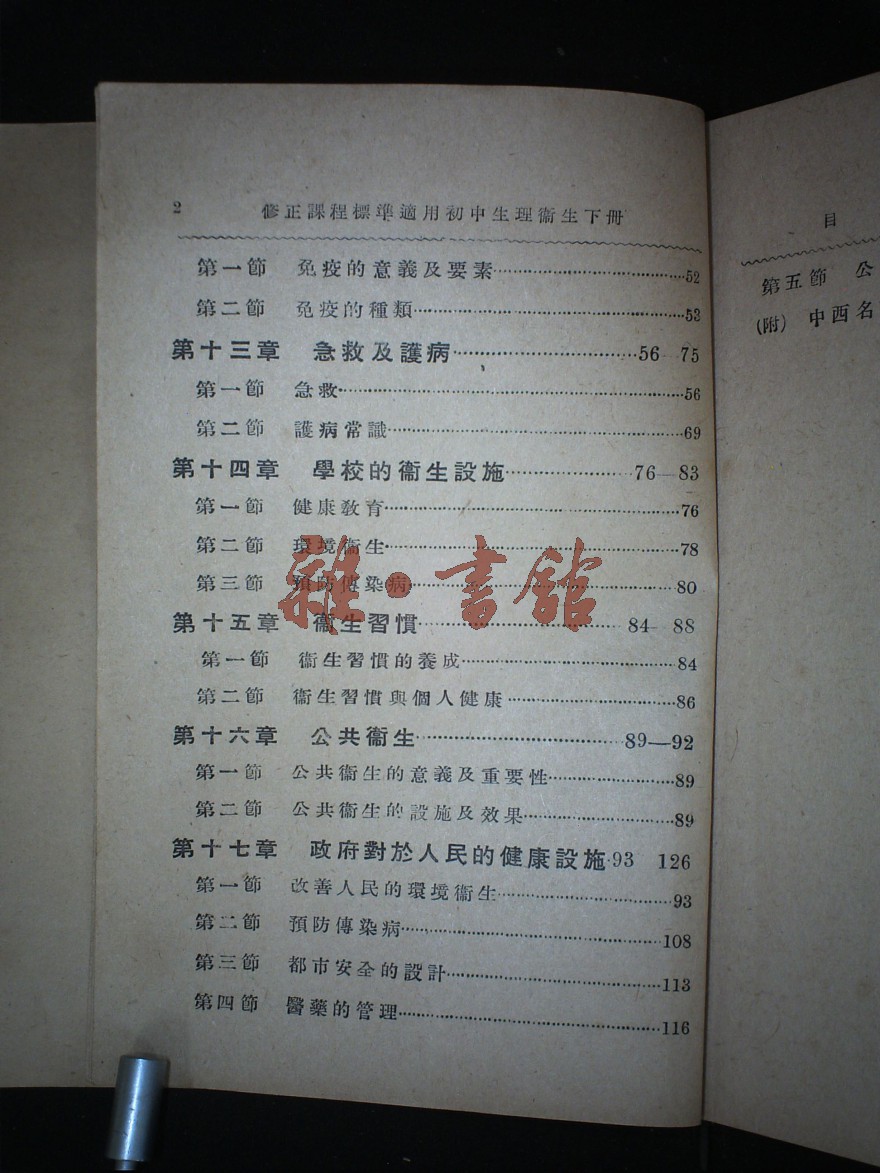 2 修正課程標準適用初中生理衞生下冊
第一節 免疫的意義及要素……52
第二節 免疫的種類……53
第十三章 急救及護病……56 75
第一節 急救……56
第二節 護病常識……69
第十四章 學校的衞生設施……76—83
第一節 健康教育……76
第二節 環境衞生……78
第三節 預防傳染病……80
第十五章 衞生習慣……84-88
第一節 衞生習慣的養成……84
第二節 衞生習慣與個人健康……86
第十六章 公共衞生……89—92
第一節 公共衞生的意義及重要性……89
第二節 公共衞生的設施及效果……89
第十七章 政府對於人民的健康設施·93 126
第一節 改善人民的環境衞生……93
第二節 預防傳染病……108
第三節 都市安全的設計……113
第四節 醫藥的管理……116
雜·書館
目
第五節 公
(附) 中西名